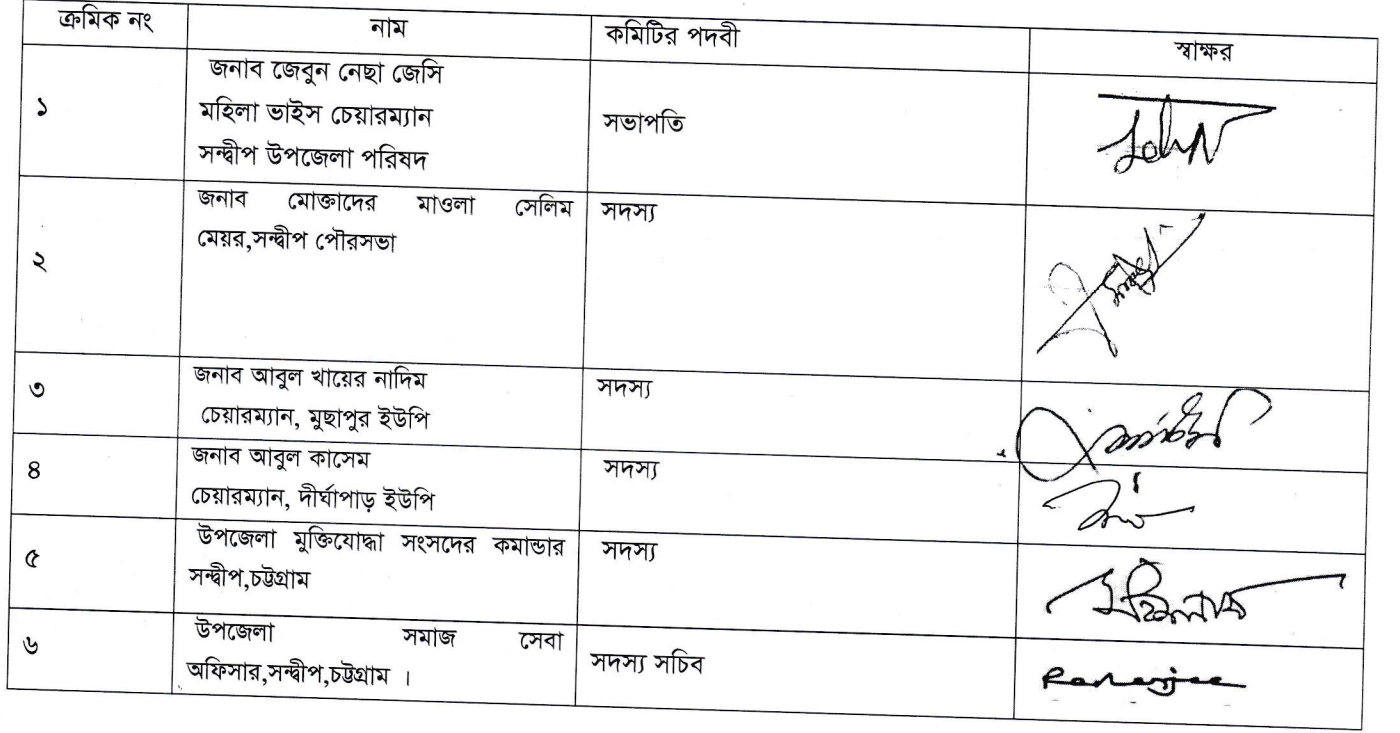 ক্রমিক নং নাম কমিটির পদবী স্বাক্ষর
১
জনাব জেবুন নেছা জেসি
মহিলা ভাইস চেয়ারম্যান
সন্দ্বীপ উপজেলা পরিষদ
সভাপতি
২
জনাব মোক্তাদের মাওলা সেলিম
মেয়র,সন্দ্বীপ পৌরসভা
সদস্য
৩
জনাব আবুল খায়ের নাদিম
চেয়ারম্যান, মুছাপুর ইউপি
সদস্য
৪
জনাব আবুল কাসেম
চেয়ারম্যান, দীর্ঘাপাড় ইউপি
সদস্য
৫
উপজেলা মুক্তিযোদ্ধা সংসদের কমান্ডার
সন্দ্বীপ,চট্টগ্রাম
সদস্য
৬
উপজেলা সমাজ সেবা
অফিসার,সন্দ্বীপ,চট্টগ্রাম ।
সদস্য সচিব